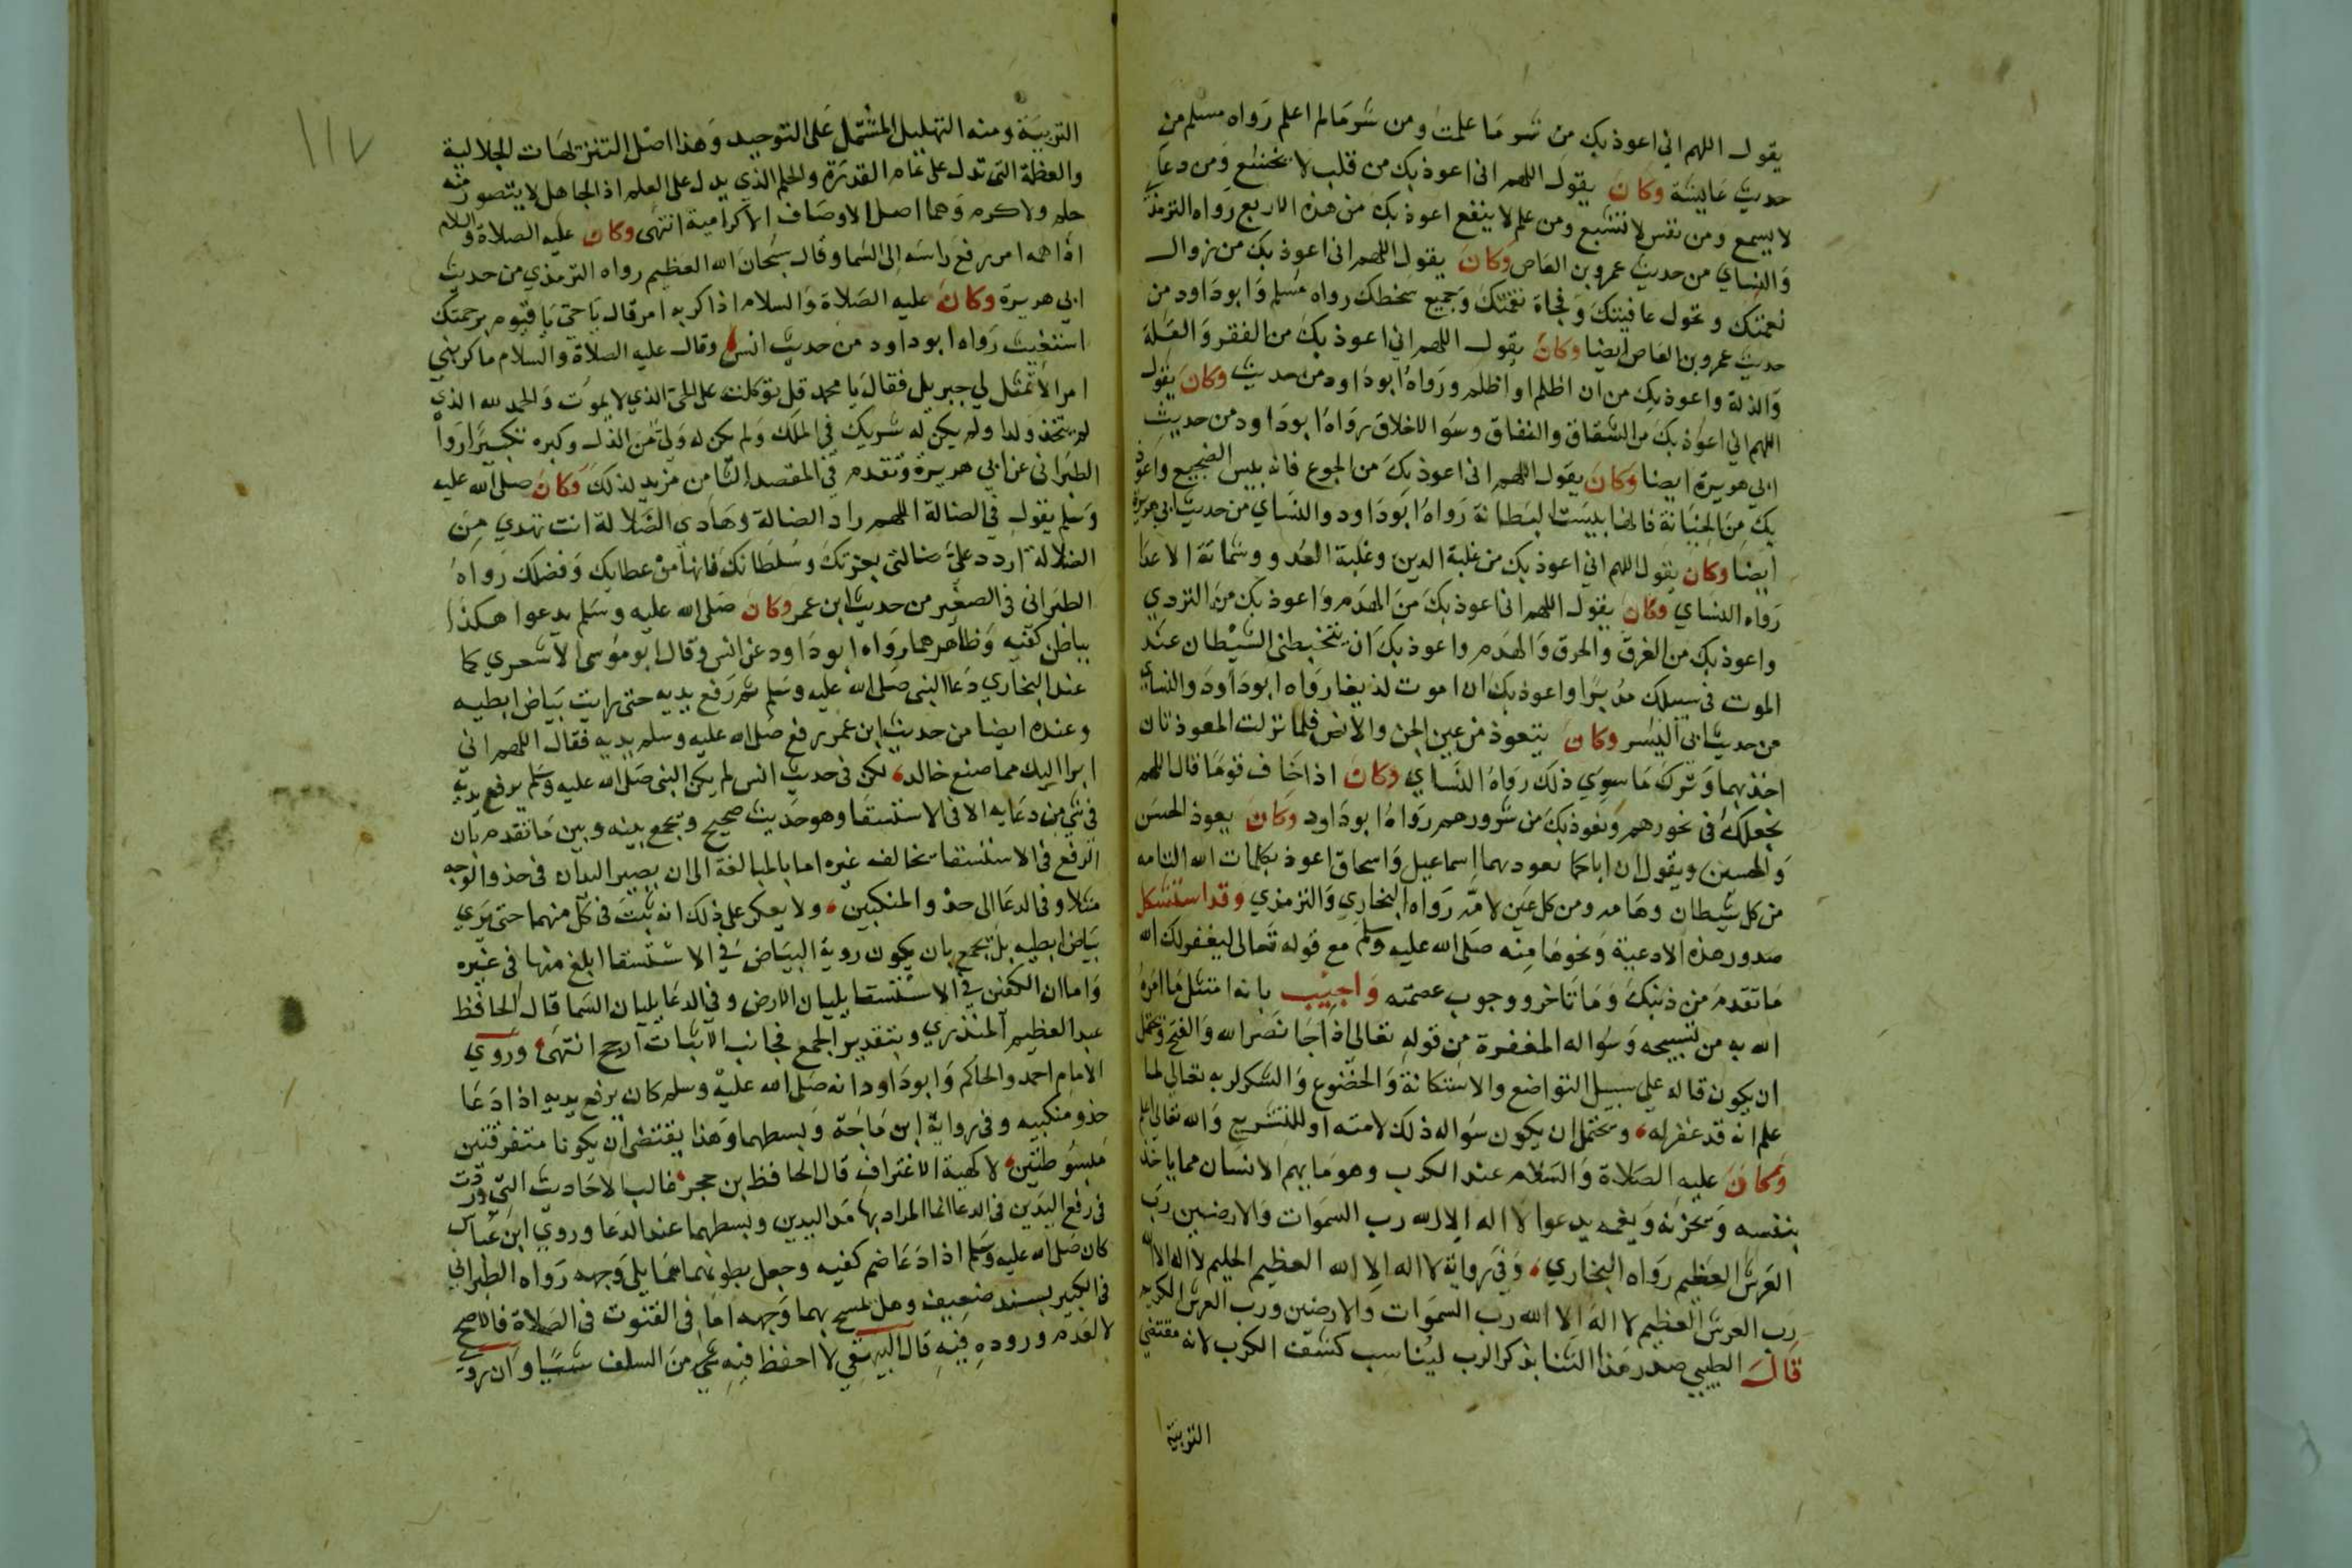 يقول اللهم اني اعوذ بك من شر ما علمت ومن شر ما لم اعلم رواه مسلم من
حديث عايشة وكان يقول اللهم انى اعوذ بك من قلب لا يخشع ومن دعا
لا يسمع ومن نفس لا تشبع ومن علم لا ينفع اعوذ بك من هذه الاربع رواه الترمذي
والنساي من حديث عمرو بن العاص وكان يقول اللهم انى اعوذ بك من زوال
نعمتك وتحول عافيتك وفجاة نقمتك وجميع سخطك رواه مسلم وابوداود من
حديث عمرو بن العاص ايضا وكان يقول اللهم اني اعوذ بك من الفقر والقلة
والذلة واعوذ بك من ان اظلم او اظلم ورواه ابوداود من حديث وكان يقول
اللهم اني اعوذ بك من الشقاق والنفاق وسوا الاخلاق رواه ابوداود من حديث
ابي هريرة ايضا وكان يقول اللهم انى اعوذ بك من الجوع فانه بيس الضجيع واعوذ
بك من الخيانة فانها بيست البطانة رواه ابوداود والنساي من حديث ابي هريرة
ايضا وكان يقول اللهم اني اعوذ بك من غلبة الدين وغلبة العدو وشماتة الاعدا
رواه النساي وكان يقول اللهم انى اعوذ بك من الهدم واعوذ بك من التردي
واعوذ بك من الغرق والحرق والهدم واعوذ بك ان يتخبطنى الشيطان عند
الموت فى سبيلك مدبرا واعوذ بك ان اموت لديغا رواه ابوداود والنساي
من حديث ابى اليسر وكان يتعوذ من عين الجن والانس فلما نزلت المعوذتان
اخذ بهما وترك ما سوي ذلك رواه النساي وكان اذا خاف قوما قال اللهم
نجعلك فى نحورهم ونعوذ بك من شرورهم رواه ابوداود وكان يعوذ الحسن
والحسين ويقول ان اباكما يعوذ بهما اسماعيل واسحاق اعوذ بكلمات الله التامه
من كل شيطان وهامه ومن كل عين لامه رواه البخاري والترمذي وقد استشكل
صدور هذه الادعية ونحوها منه صلى الله عليه وسلم مع قوله تعالى ليغفر لك الله
ما تقدم من ذنبك وما تاخر ووجوب عصمته واجيب بانه امتثل ما امره
الله به من تسبيحه وسواله المغفرة من قوله تعالى اذا جا نصر الله والفتح ويحتمل
ان يكون قاله على سبيل التواضع والاستكانة والخضوع والشكر لربه تعالى لما
علم انه قد غفر له ويحتمل ان يكون سواله ذلك لامته او للتشريع والله تعالى اعلم
وكان عليه الصلاة والسلام عند الكرب وهو ما يهم الانسان مما ياخذ
بنفسه ويحزنه ويغمه يدعوا لا اله الا الله رب السموات والارضين رب
العرش العظيم رواه البخاري وفى رواية لا اله الا الله العظيم الحليم لا اله الا الله
رب العرش العظيم لا اله الا الله رب السموات والارضين ورب العرش الكريم
قال الطيبي صدر هذا الثنا بذكر الرب ليناسب كشف الكرب لانه مقتضى
التربية
١١٧
التربية ومنه التهليل المشتمل على التوحيد وهذا اصل التنزيهات الجلالية
والعظمة التى تدل على تمام القدرة والحلم الذي يدل على العلم اذ الجاهل لا يتصور منه
حلم ولا كرم وهما اصل الاوصاف الاكرامية انتهى وكان عليه الصلاة والسلام
اذا اهمه امر رفع راسه الى السما وقال سبحان الله العظيم رواه الترمذي من حديث
ابي هريرة وكان عليه الصلاة والسلام اذا كربه امر قال يا حي يا قيوم برحمتك
استغيث رواه ابوداود من حديث انس وقال عليه الصلاة والسلام ما كربني
امر الا تمثل لي جبريل فقال يا محمد قل توكلت على الحى الذي لا يموت والحمد لله الذي
لم يتخذ ولدا ولم يكن له شريك في الملك ولم يكن له ولي من الذل وكبره تكبيرا رواه
الطبرانى عن ابي هريرة وتقدم في المقصد الثامن مزيد لذلك وكان صلى الله عليه
وسلم يقول في الضالة اللهم راد الضالة وهادى الضلالة انت تهدي من
الضلالة اردد على ضالتى بعزتك وسلطانك فانها من عطايك وفضلك رواه
الطبرانى فى الصغير من حديث ابن عمر وكان صلى الله عليه وسلم يدعوا هكذا
بباطن كفيه وظاهرهما رواه ابوداود عن انس وقال ابو موسى الاشعري كما
عند البخاري دعا النبى صلى الله عليه وسلم ثم رفع يديه حتى رايت بياض ابطيه
وعنده ايضا من حديث ابن عمر رفع صلى الله عليه وسلم يديه فقال اللهم انى
ابرا اليك مما صنع خالد لكن فى حديث انس لم يكن النبى صلى الله عليه وسلم يرفع يديه
فى شى من دعايه الا فى الاستسقا وهو حديث صحيح ويجمع بينه وبين ما تقدم بان
الرفع فى الاستسقا يخالف غيره اما بالمبالغة الى ان يصير اليدان فى حذو الوجه
مثلا وفى الدعا الى حذو المنكبين ولا يعكر على ذلك انه ثبت فى كل منهما حتى يري
بياض ابطيه بل يجمع بان يكون روية البياض فى الاستسقا ابلغ منها فى غيره
واما ان الكفين في الاستسقا يليان الارض وفى الدعا يليان السما قال الحافظ
عبد العظيم المنذري وبتقدير الجمع فجانب الاثبات ارجح انتهى وروي
الامام احمد والحاكم وابوداود انه صلى الله عليه وسلم كان يرفع يديه اذا دعا
حذو منكبيه وفى رواية ابن ماجة وبسطهما وهذا يقتضى ان يكونا متفرقتين
مبسوطتين لا كهية الاغتراف قال الحافظ بن حجر غالب الاحاديث التى وردت
فى رفع اليدين فى الدعا انما المراد بها مد اليدين وبسطهما عند الدعا وروي ابن عباس
كان صلى الله عليه وسلم اذا دعا ضم كفيه وجعل بطونهما مما يلي وجهه رواه الطبرانى
فى الكبير بسند ضعيف وهل يمسح بهما وجهه اما فى القنوت فى الصلاة فالاصح
لا لعدم وروده فيه قال البيهقي لا احفظ فيه عن من السلف شيا وان روي